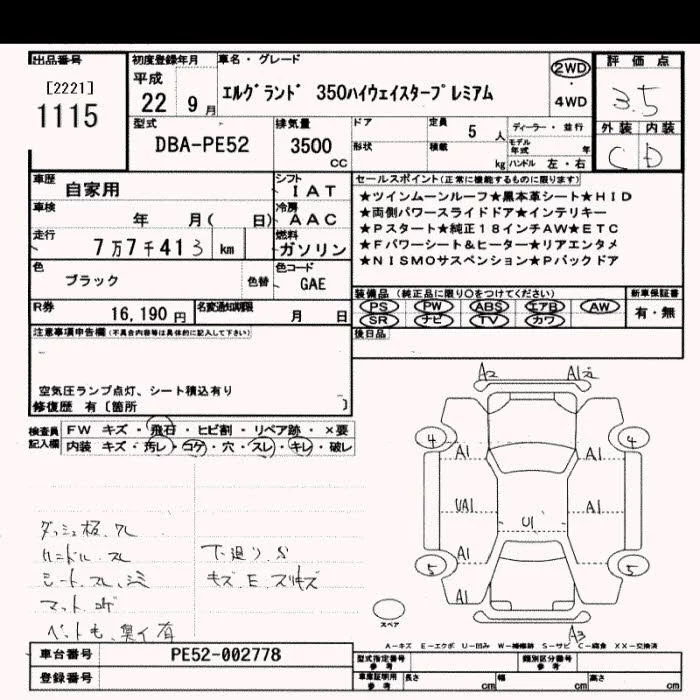 出品番号
[2221]
1115
初度登録年月
平成
22 9 月
車名・グレード
エルグランド 350ハイウェイスタープレミアム
2WD
・
4WD
評価点
3.5
外装 内装
C D
型式
DBA-PE52
排気量
3500
CC
ドア
形状
定員 5 人
積載 kg
ディーラー・並行
モデル年式 年
ハンドル 左・右
車歴 自家用
車検 年 月( 日)
走行 7万7千413 km
シフト IAT
冷房 AAC
燃料 ガソリン
色 ブラック 色替
色コード GAE
R券 16,190 円
名変通知期限 月 日
セールスポイント(正常に機能するものに限ります)
★ツインムーンルーフ★黒本革シート★HID
★両側パワースライドドア★インテリキー
★Pスタート★純正18インチAW★ETC
★Fパワーシート&ヒーター★リアエンタメ
★NISMOサスペンション★Pバックドア
装備品(純正品に限り○をつけてください)
PS PW ABS エアB AW
SR ナビ TV カワ
新車保証書
有・無
後日品
注意事項申告欄(不具合内容等は具体的に記入して下さい)
空気圧ランプ点灯、シート積込有り
修復歴 有〔箇所 〕
検査員記入欄
FW キズ・飛石・ヒビ割・リペア跡・×要
内装 キズ・汚レ・コゲ・穴・スレ・キレ・破レ
ダッシュ板、スレ
ハンドル、スレ
シート、スレ、シミ
マット、コゲ
ペット毛、臭イ有
下廻り、S
キズ、E、スリキズ
A2 A1
4 4
A1 A1
UA1 A1
U1
A1
5 5
A1
A3
スペア
A-キズ E-エクボ U-凹み W-補修跡 S-サビ C-腐食 XX-交換済
車台番号 PE52-002778
登録番号
型式指定番号
参考
類別区分番号
参考
車庫証明用
参考
長さ cm
幅 cm
高さ cm